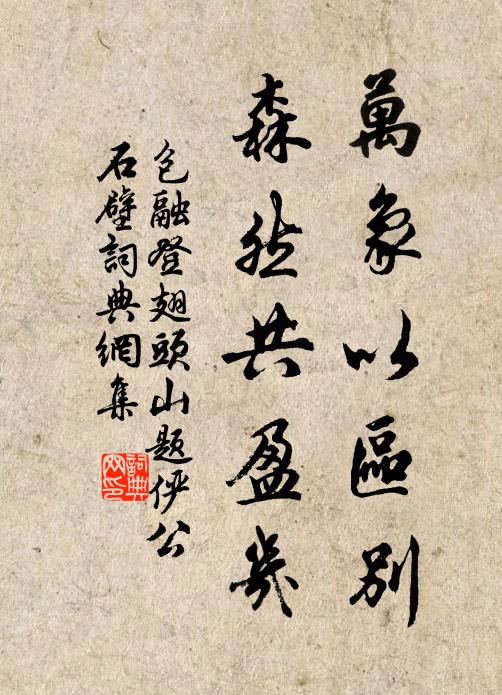 萬象以區別
森然共盈幾
包融登翅頭山題儼公
石壁詞典網集
詞典網印